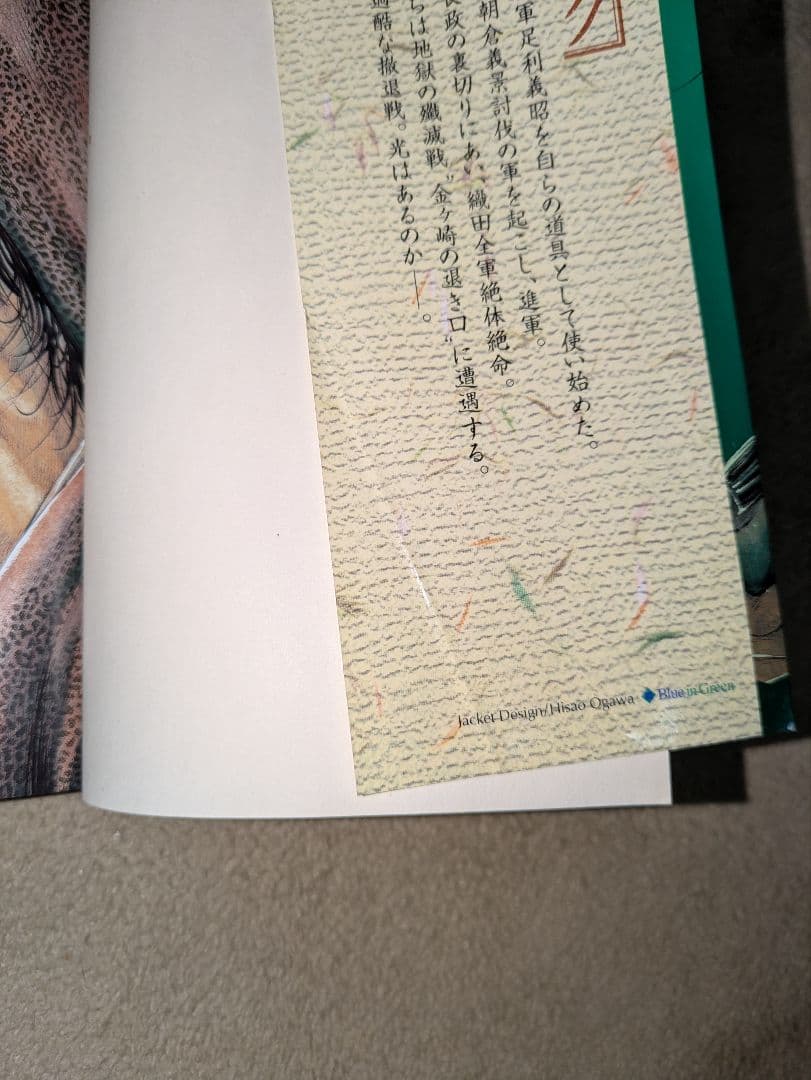 軍足利義昭を自らの道具として使い始めた。
朝倉義景討伐の軍を起こし、進軍。
長政の裏切りにあい、織田全軍絶体絶命。
ちは地獄の殲滅戦〝金ヶ崎の退き口〟に遭遇する。
過酷な撤退戦。光はあるのか——。
Jacket Design/Hisao Ogawa ◆ Blue in Green